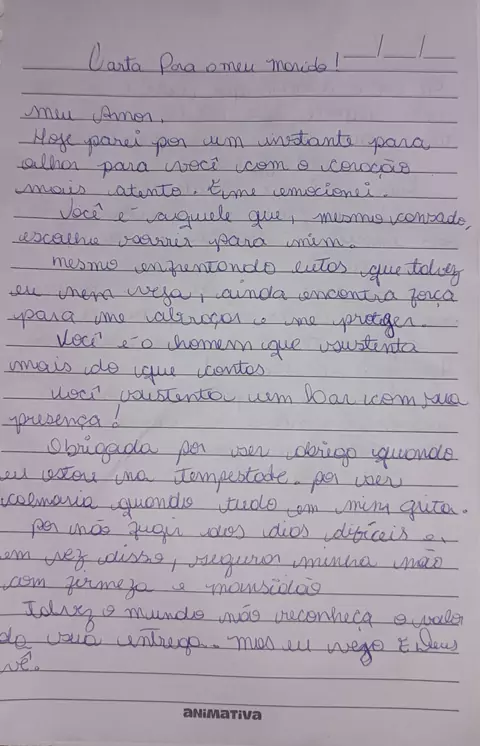 Carta Para o meu marido! __/__/__
meu Amor,
Hoje parei por um instante para
olhar para você com o coração
mais atento. E me emocionei.
Você é aquele que, mesmo cansado,
escolhe sorrir para mim.
mesmo enfrentando lutas que talvez
eu nem veja, ainda encontra força
para me abraçar e me proteger.
Você é o homem que sustenta
mais do que contas
você sustenta um lar com sua
presença!
Obrigada por ser abrigo quando
eu estou na tempestade. por ser
calmaria quando tudo em mim grita.
por não fugir dos dias difíceis e,
em vez disso, segurar minha mão
com firmeza e mansidão
Talvez o mundo não reconheça o valor
da sua entrega. mas eu vejo E Deus
vê.
ANIMATIVA